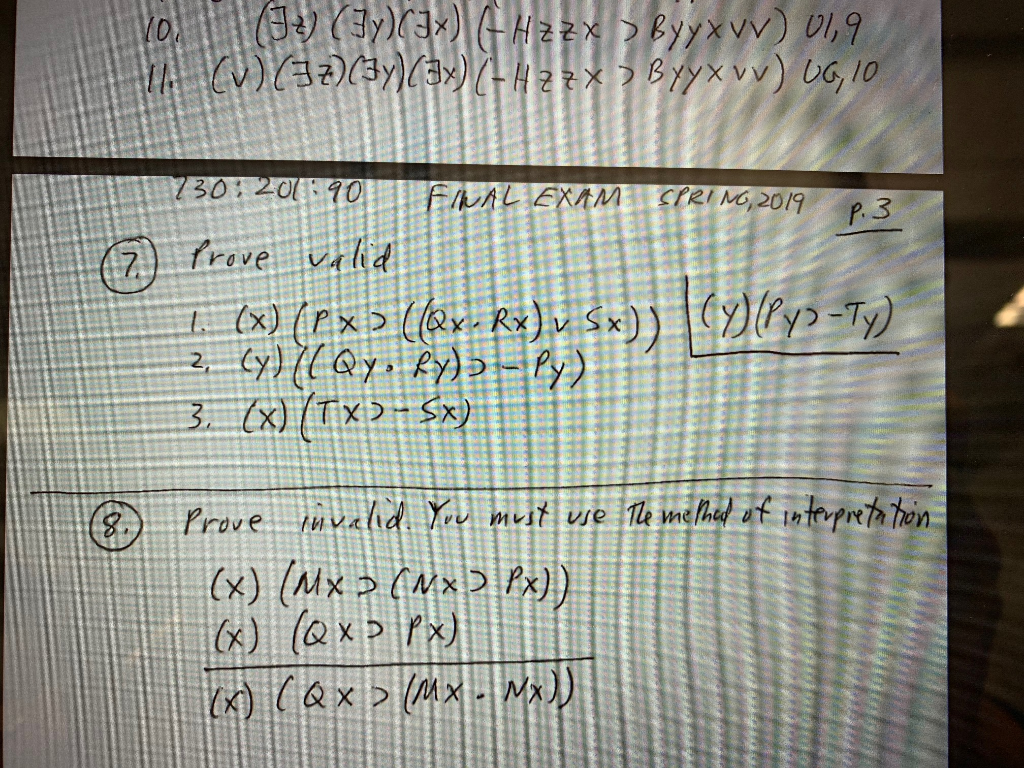 10. (∃z) (∃y)(∃x) (-Hzzx ⊃ Byyxvv) UI,9
11. (v)(∃z)(∃y)(∃x)(-Hzzx ⊃ Byyxvv) UG,10
730:201:90 FINAL EXAM SPRING,2019 p.3
7. Prove valid
1. (x)(Px ⊃ ((Qx · Rx) v Sx)) (y)(Py ⊃ -Ty)
2. (y)((Qy · Ry) ⊃ -Py)
3. (x)(Tx ⊃ -Sx)
8. Prove invalid. You must use The method of interpretation
(x) (Mx ⊃ (Nx ⊃ Px))
(x) (Qx ⊃ Px)
(x) (Qx ⊃ (Mx · Nx))